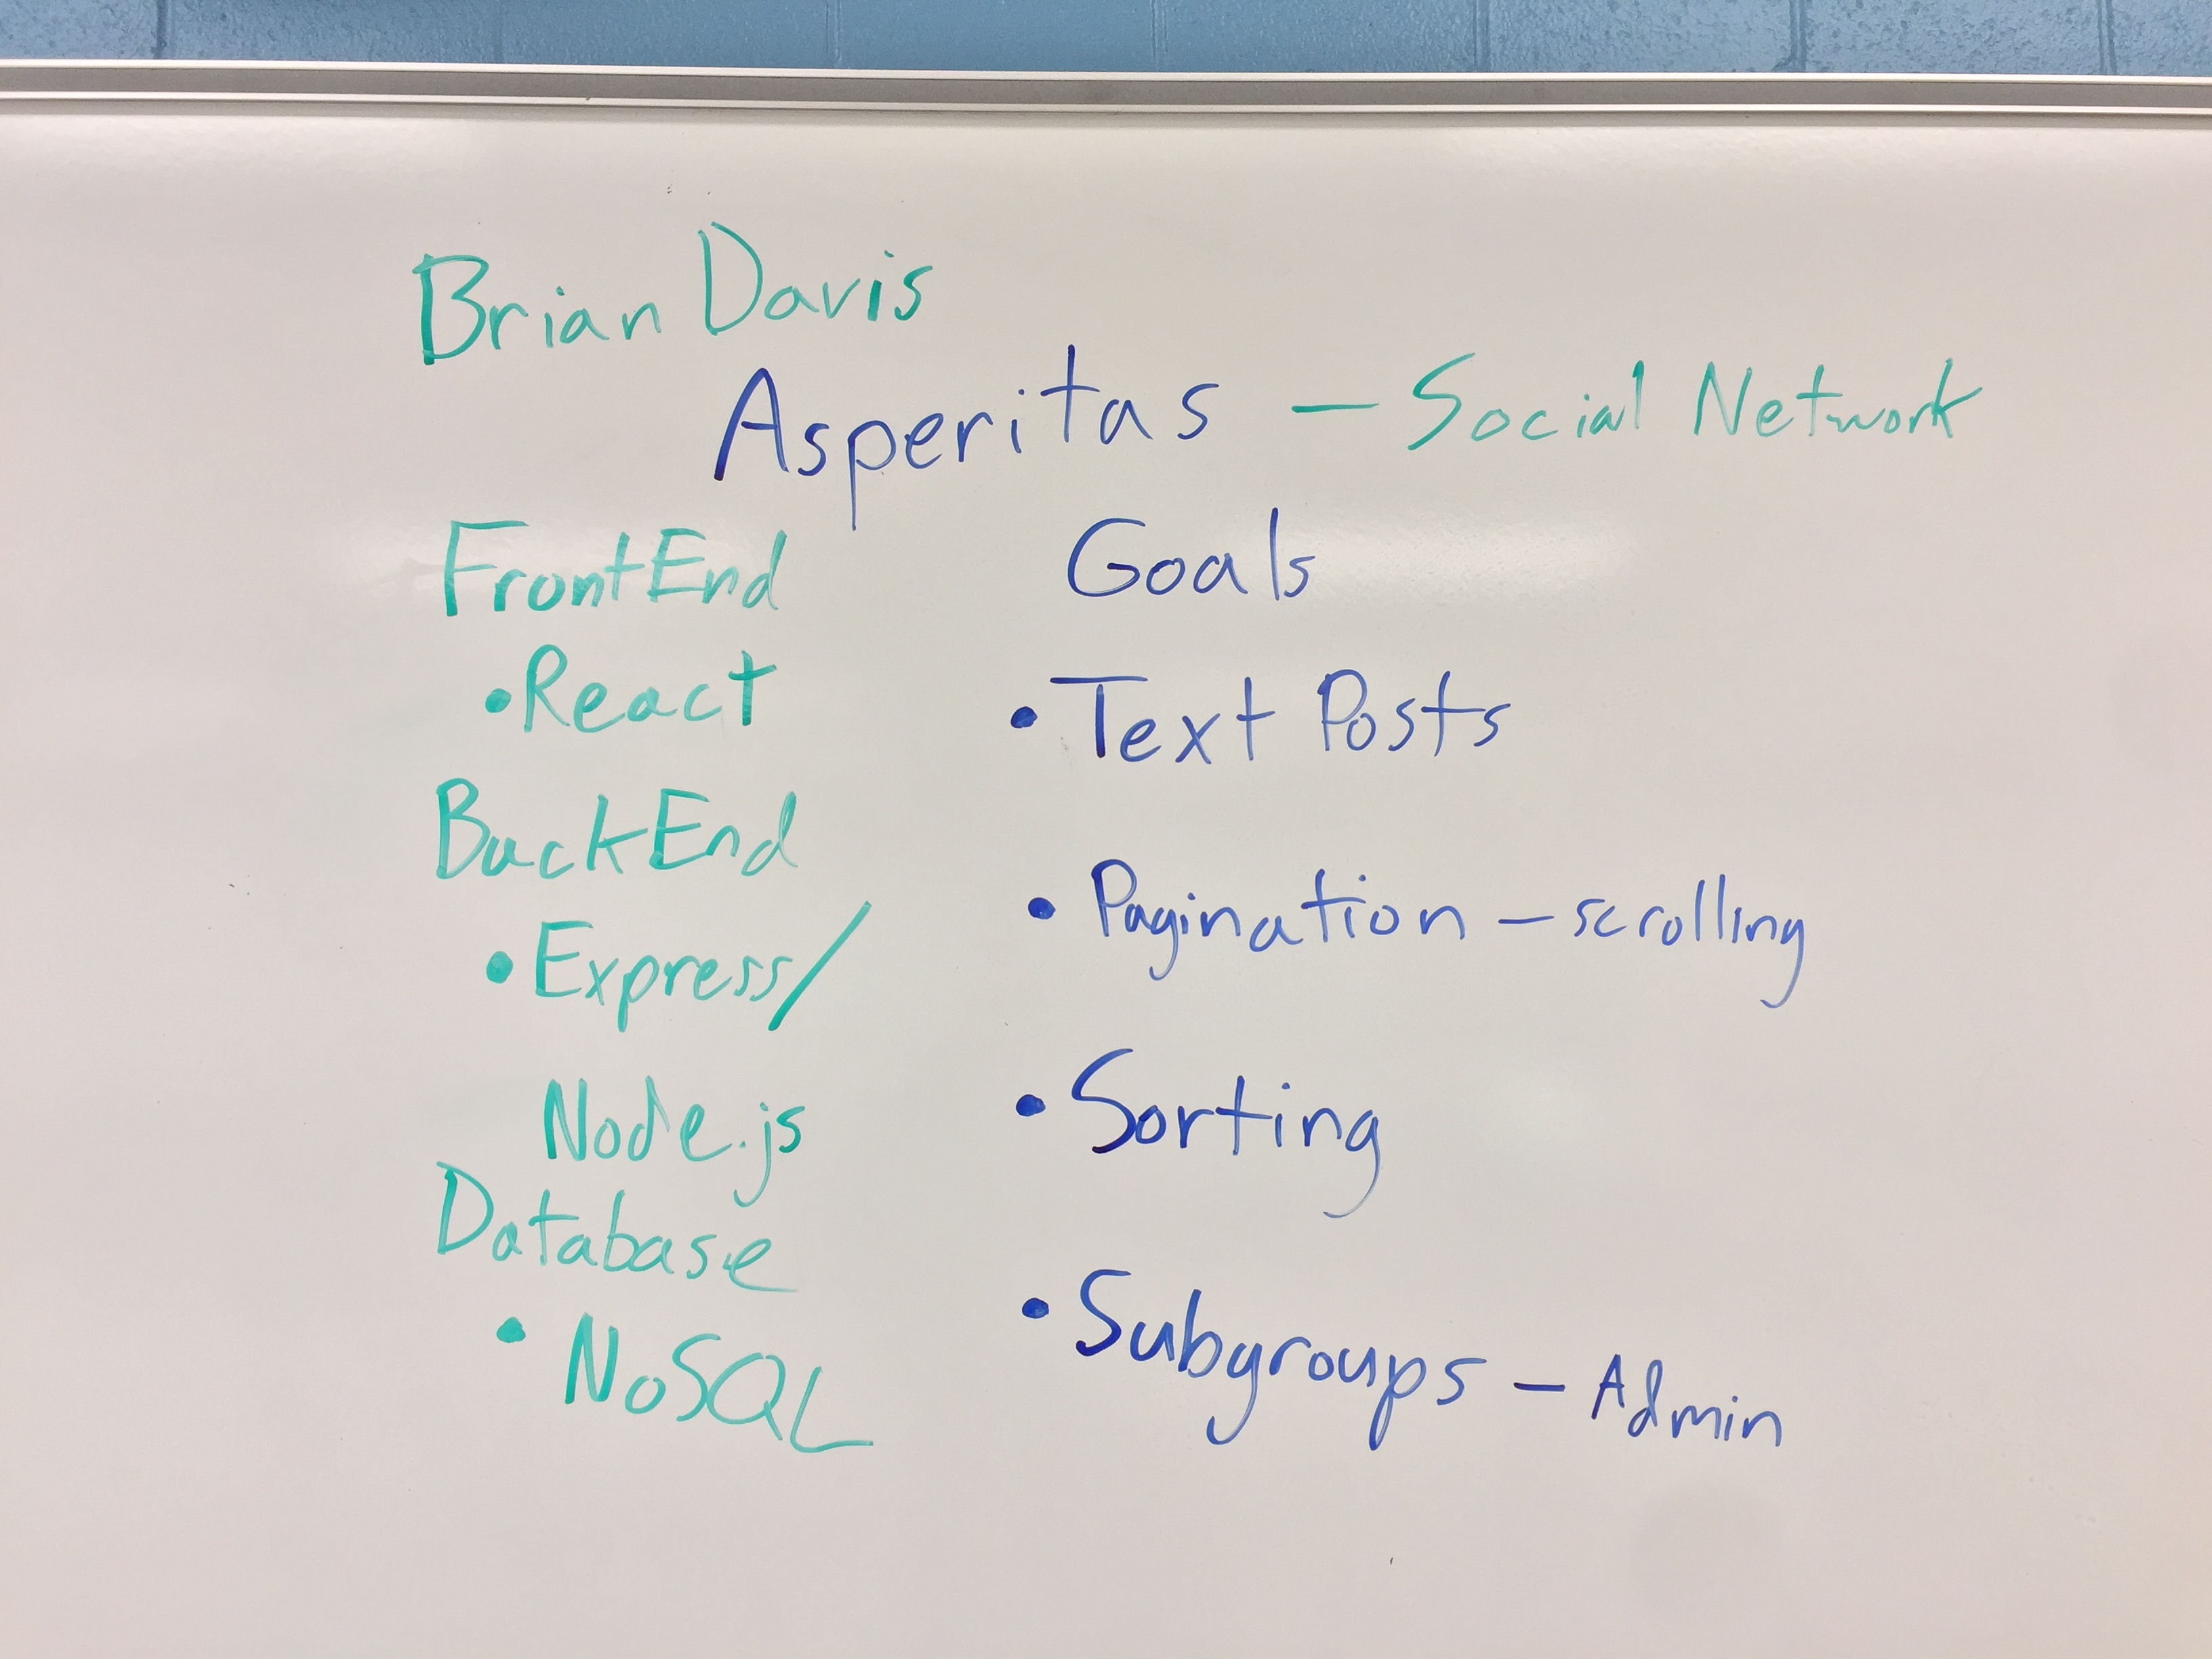 Brian Davis
Asperitas — Social Network
FrontEnd
• React
BackEnd
• Express/
Node.js
Database
• NoSQL
Goals
• Text Posts
• Pagination — scrolling
• Sorting
• Subgroups — Admin